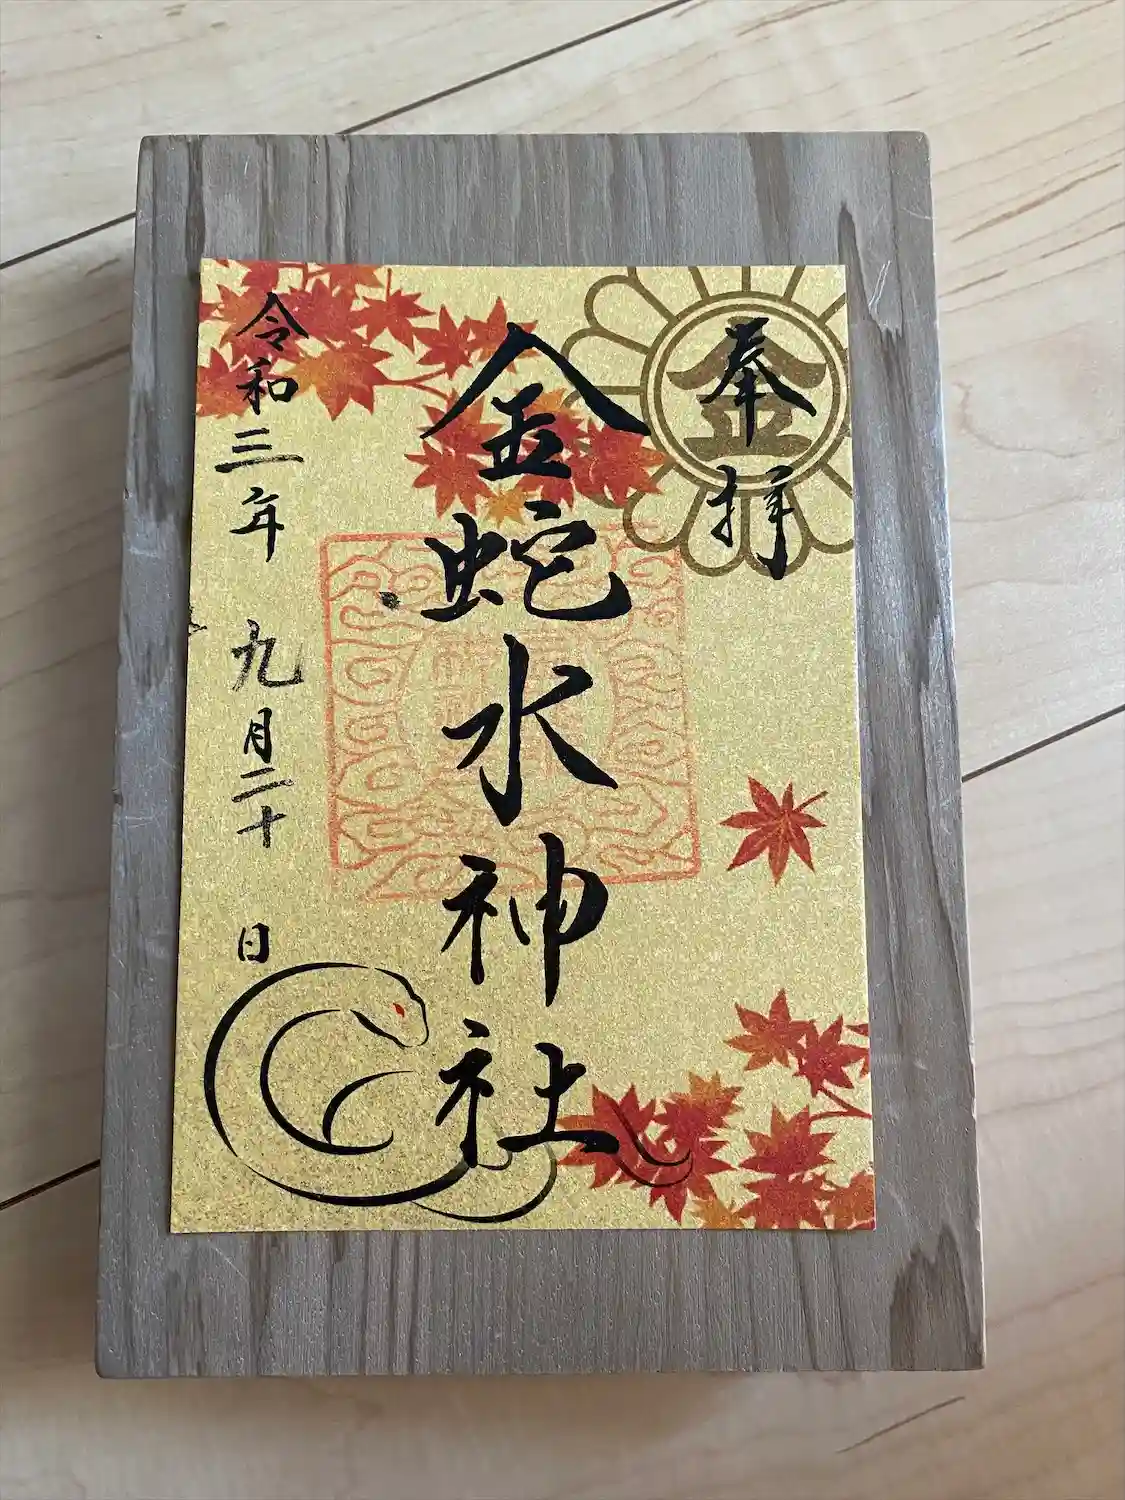 奉拝
金
金蛇水神社
令和三年 九月二十 日